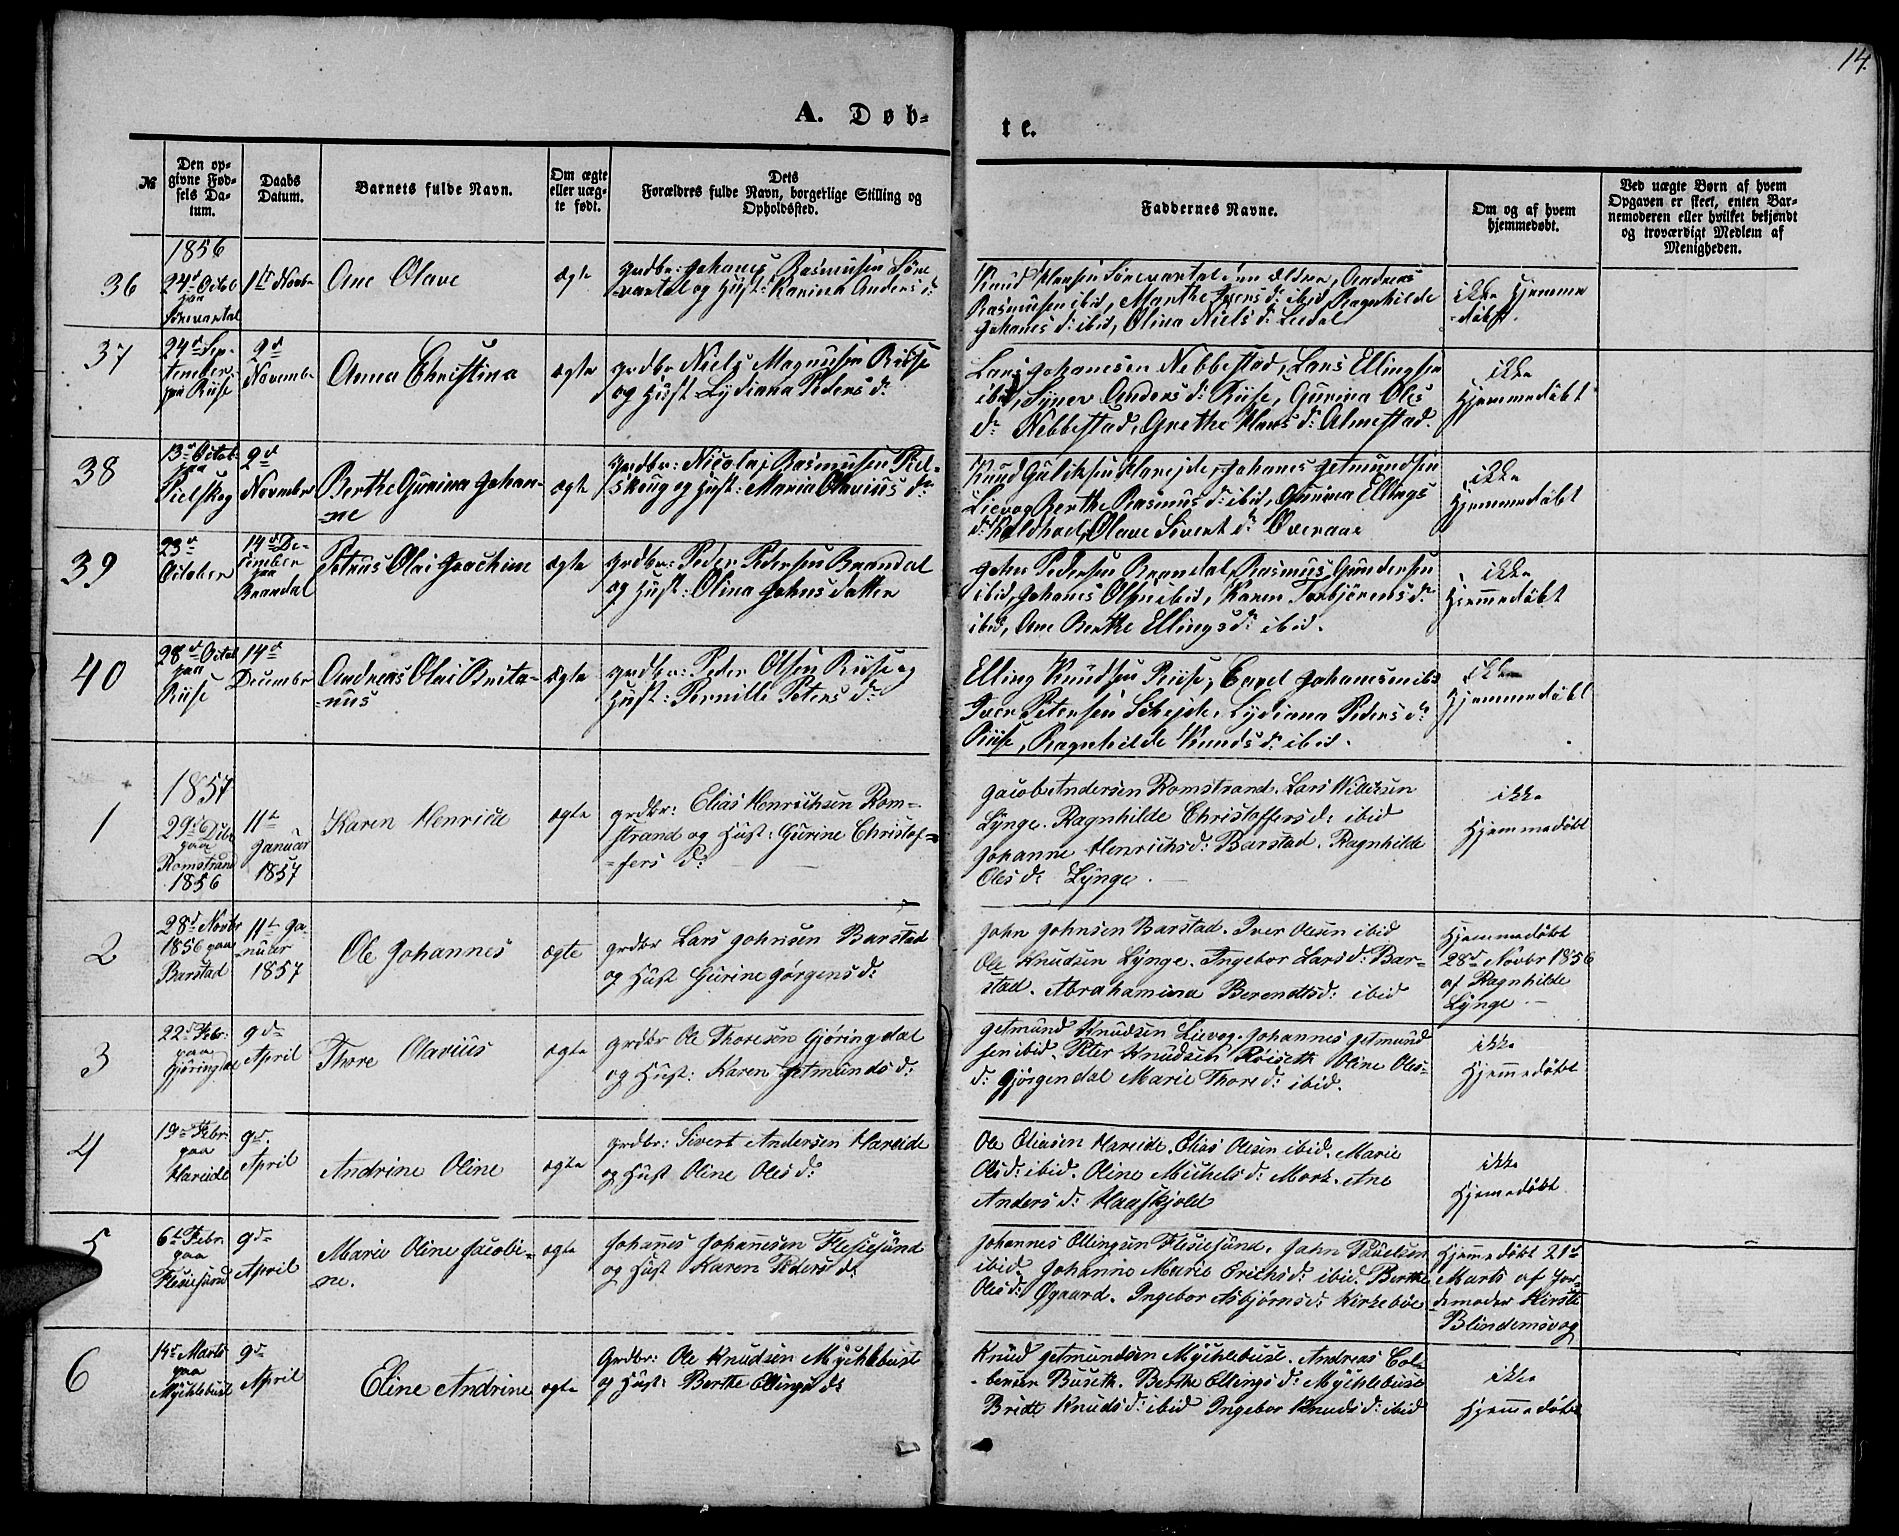 14.
A. Døb-
te.
№
Den opgivne Fødsels Datum.
Daabs Datum.
Barnets fulde Navn.
Om ægte eller uægte født.
Dets Forældres fulde Navn, borgerlige Stilling og Opholdssted.
Faddernes Navne.
Om og af hvem hjemmedøbt.
Ved uægte Børn af hvem Opgaven er skeet, enten Barnemoderen eller hvilket bekjendt og troværdigt Medlem af Menigheden.
1856
36
24de Octob
paa
1ste Novbr
Ane Olave
ægte
grdbr: Johanes Rasmusen Süne
vartal og Hust: Karina Anders d:
Knud Hansen Sünevartal den Eldre, Andreas
Rasmusen ibid, Marthe Ivers d: ibid Ragnhilde
Johanes d: ibid, Olina Niels d: Liedal
ikke Hjemme
døbt.
37
24d Sep-
tember
paa Riise
2d
Novembr
Anna Christina
ægte
grdbr Niels Magnusen Riise
og Hust Lydiana Peders d:
Lars Johanesen Nebbestad, Lars Ellingsen
ibid, Synev Anders d: Riise, Gurina Oles
d: Nebbestad, Grethe Hans d: Almestad.
ikke
Hjemmedöbt
38
13d Octob
paa
Pielskog
2d
November
Berthe Gurina Johan-
ne
ægte
grdbr: Nicolai Rasmusen Piel-
skoug og Hust: Maria Olavius d:
Knud Guliksen Hareide, Johanes Getmundsen
Lievog Berthe Rasmus d: ibid, Gunina Ellings
d: Kaldhol, Olave Sivert d: Overaae
ikke
Hjemmedöbt
39
23d
October
14d De-
cember
paa
Brandal
Petrus Olai Joachim
ægte
grdbr: Peder Pedersen Brandal
og Hust: Olina Johns datter
John Pedersen Brandal, Rasmus Gundersen
ibid, Johanes Olsen ibid, Karen Torbjörns d:
ibid, Ane Berthe Ellings d: ibid.
ikke
Hjemmedöbt
40
28d Octob
paa
Riise
14d
Decembr
Andreas Olai Brita-
nus
ægte
grdbr: Peder Olsen Riise og
Hust: Pernille Peters d:
Elling Knudsen Riise, Carel Johanesen ibd
Iver Petersen Schejde, Lydiana Peders d:
Riise, Ragnhilde Knuds d: ibid.
ikke
Hjemmedöbt
1857
1
29d Dcbr
paa
Romstrand
1856
11te
Januar
1857
Karen Henricke
ægte
grdbr: Elias Henrichsen Rom-
strand og Hust: Gurine Christof-
fers d:
Jacob Andersen Romstrand. Lars
Lynge. Ragnhilde Christoffersd: ibid
Johanne Henrichsd: Barstad. Ragnhilde
Olesd: Lynge.
ikke
Hjemmedöbt
2
28d Novbr
1856 paa
Barstad
11te Ja-
nuar
1857
Ole Johannes
ægte
grdbr Lars Johnsen Barstad
og Hust Gurine Jörgens d:
John Johnsen Barstad. Iver Olsen ibid
Ole Knudsen Lynge. Ingebor Lars d: Bar-
stad. Abrahamina Berendtsd: ibid
Hjemmedöbt
28d Novbr 1856
af Ragnhilde
Lynge.
3
22d Febr:
paa
Gjöringdal
9d
April
Thore Olavius
ægte
grdbr Ole Thoresen Gjöringdal
og Hust: Karen Getmunds d:
Getmund Knudsen Lievog. Johannes Getmund
sen ibid. Peter Knudsen Röiseth Oline Oles-
d: Gjörgendal Marie Thore d: ibid.
ikke
Hjemmedöbt
4
19de Febr:
paa
Hareide
9d
April
Andrine Oline
ægte
grdbr: Sivert Andersen Hareide
og Hust Oline Oles d:
Ole Eliasen Hareide. Elias Olesen ibid. Marie
Oles d: ibid. Oline Michels d: Mork. Ane
Anders d: Haaskjold
ikke
Hjemedöbt
5
6te Febr.
paa
Flesiesund
9d
April
Marie Oline Jacobi-
ne.
ægte
Johanes Johanesen Flesiesund
og Hust Karen Peders d:
Johannes Ellingsen Flesiesund. John Paulsen
ibid. Johanne Marie Erichs d: ibid. Berthe
Oles d: Ögaard. Ingebor Asbjörns d: Kirkeböe
Hjemmedöbt 21de
Marts af Jor-
demoder Kirsti
Blindemsvog
6
14d Marts
paa
Mÿchlebust
9d
April
Eline Andrine
ægte
Grdbr: Ole Knudsen Mÿchlebust
og Hust: Berthe Ellings d:
Knud Getmundsen Mÿchlebust. Andreas Col-
bensen Buseth. Berthe Ellings d: Mÿchlebust
Brede Knuds d: ibid Ingebor Knuds d: ibid
ikke
Hjemmedöbt